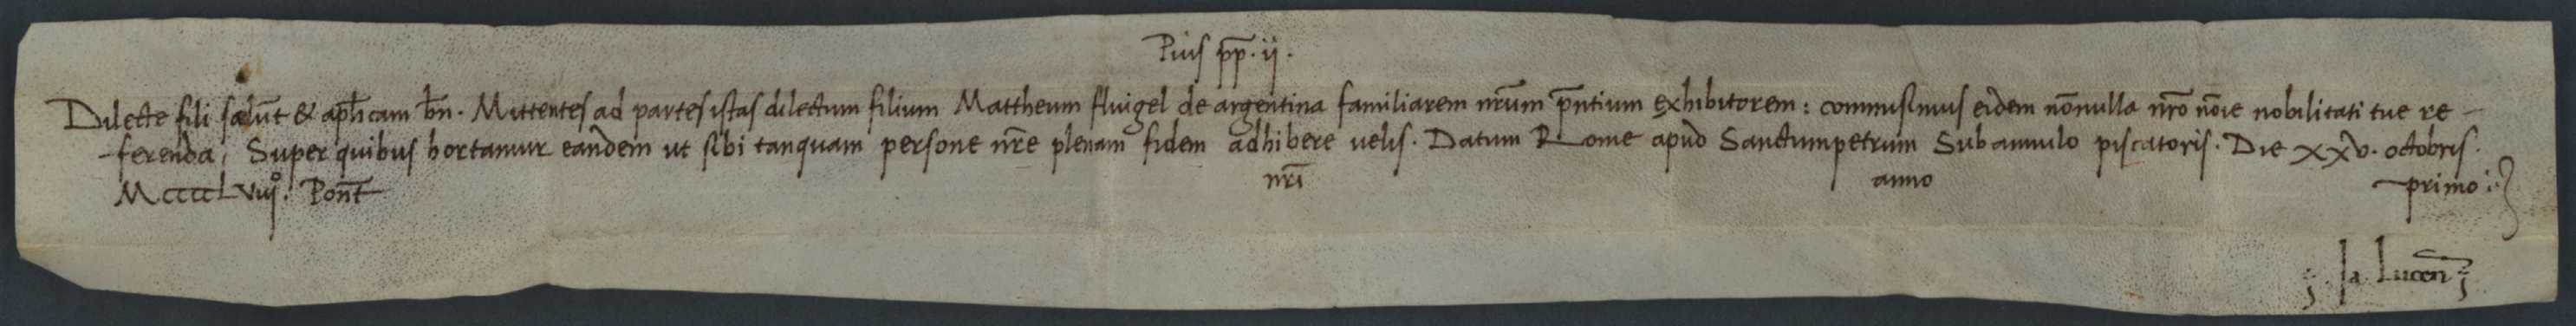 Pius pp̄. ij.
Dilecte fili salūt & ap̄licam bn̄. Mittentes ad partes istas dilectum filium Mattheum fluigel de argentina familiarem nr̄um p̄ntium exhibitorem: commisimus eidem nōnulla nr̄o nōīe nobilitati tue re-
-ferenda, Super quibus hortamur eandem ut sibi tanquam persone nr̄e plenam fidem adhibere velis. Datum Rome apud Sanctumpetrum Sub annulo piscatoris. Die XXV. octobris.
MccccLViijº. Pon̄t nr̄i anno primo
Ja. Lucen̄